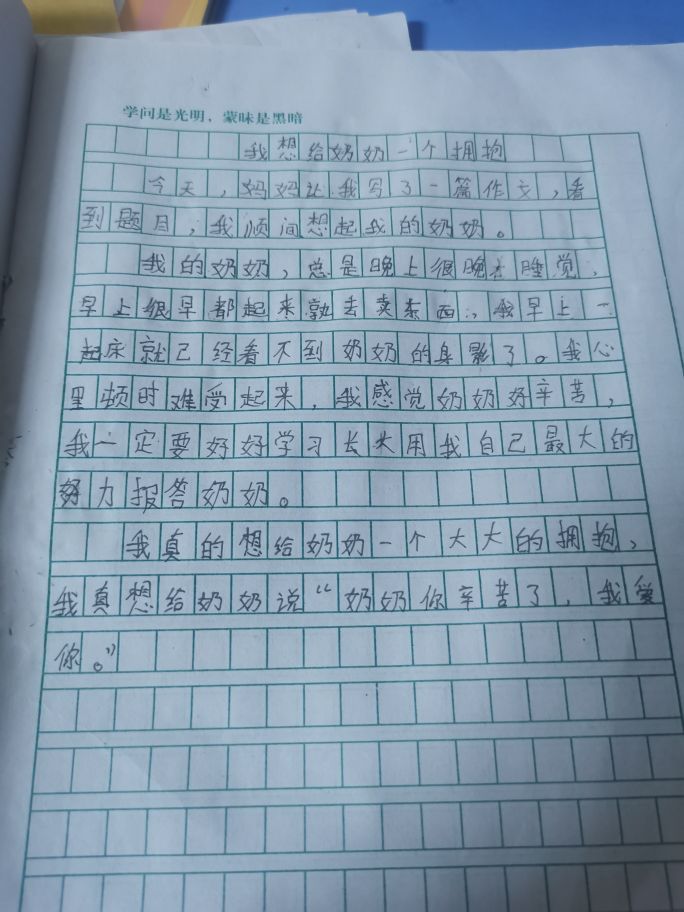 学问是光明，蒙昧是黑暗
我想给奶奶一个拥抱
今天，妈妈让我写了一篇作文，看
到题目，我顺间想起我的奶奶。
我的奶奶，总是晚上很晚才睡觉，
早上很早都起来就去卖东西，我早上一
起床就已经看不到奶奶的身影了。我心
里顿时难受起来，我感觉奶奶好辛苦，
我一定要好好学习长大用我自己最大的
努力报答奶奶。
我真的想给奶奶一个大大的拥抱，
我真想给奶奶说“奶奶你辛苦了，我爱
你。”